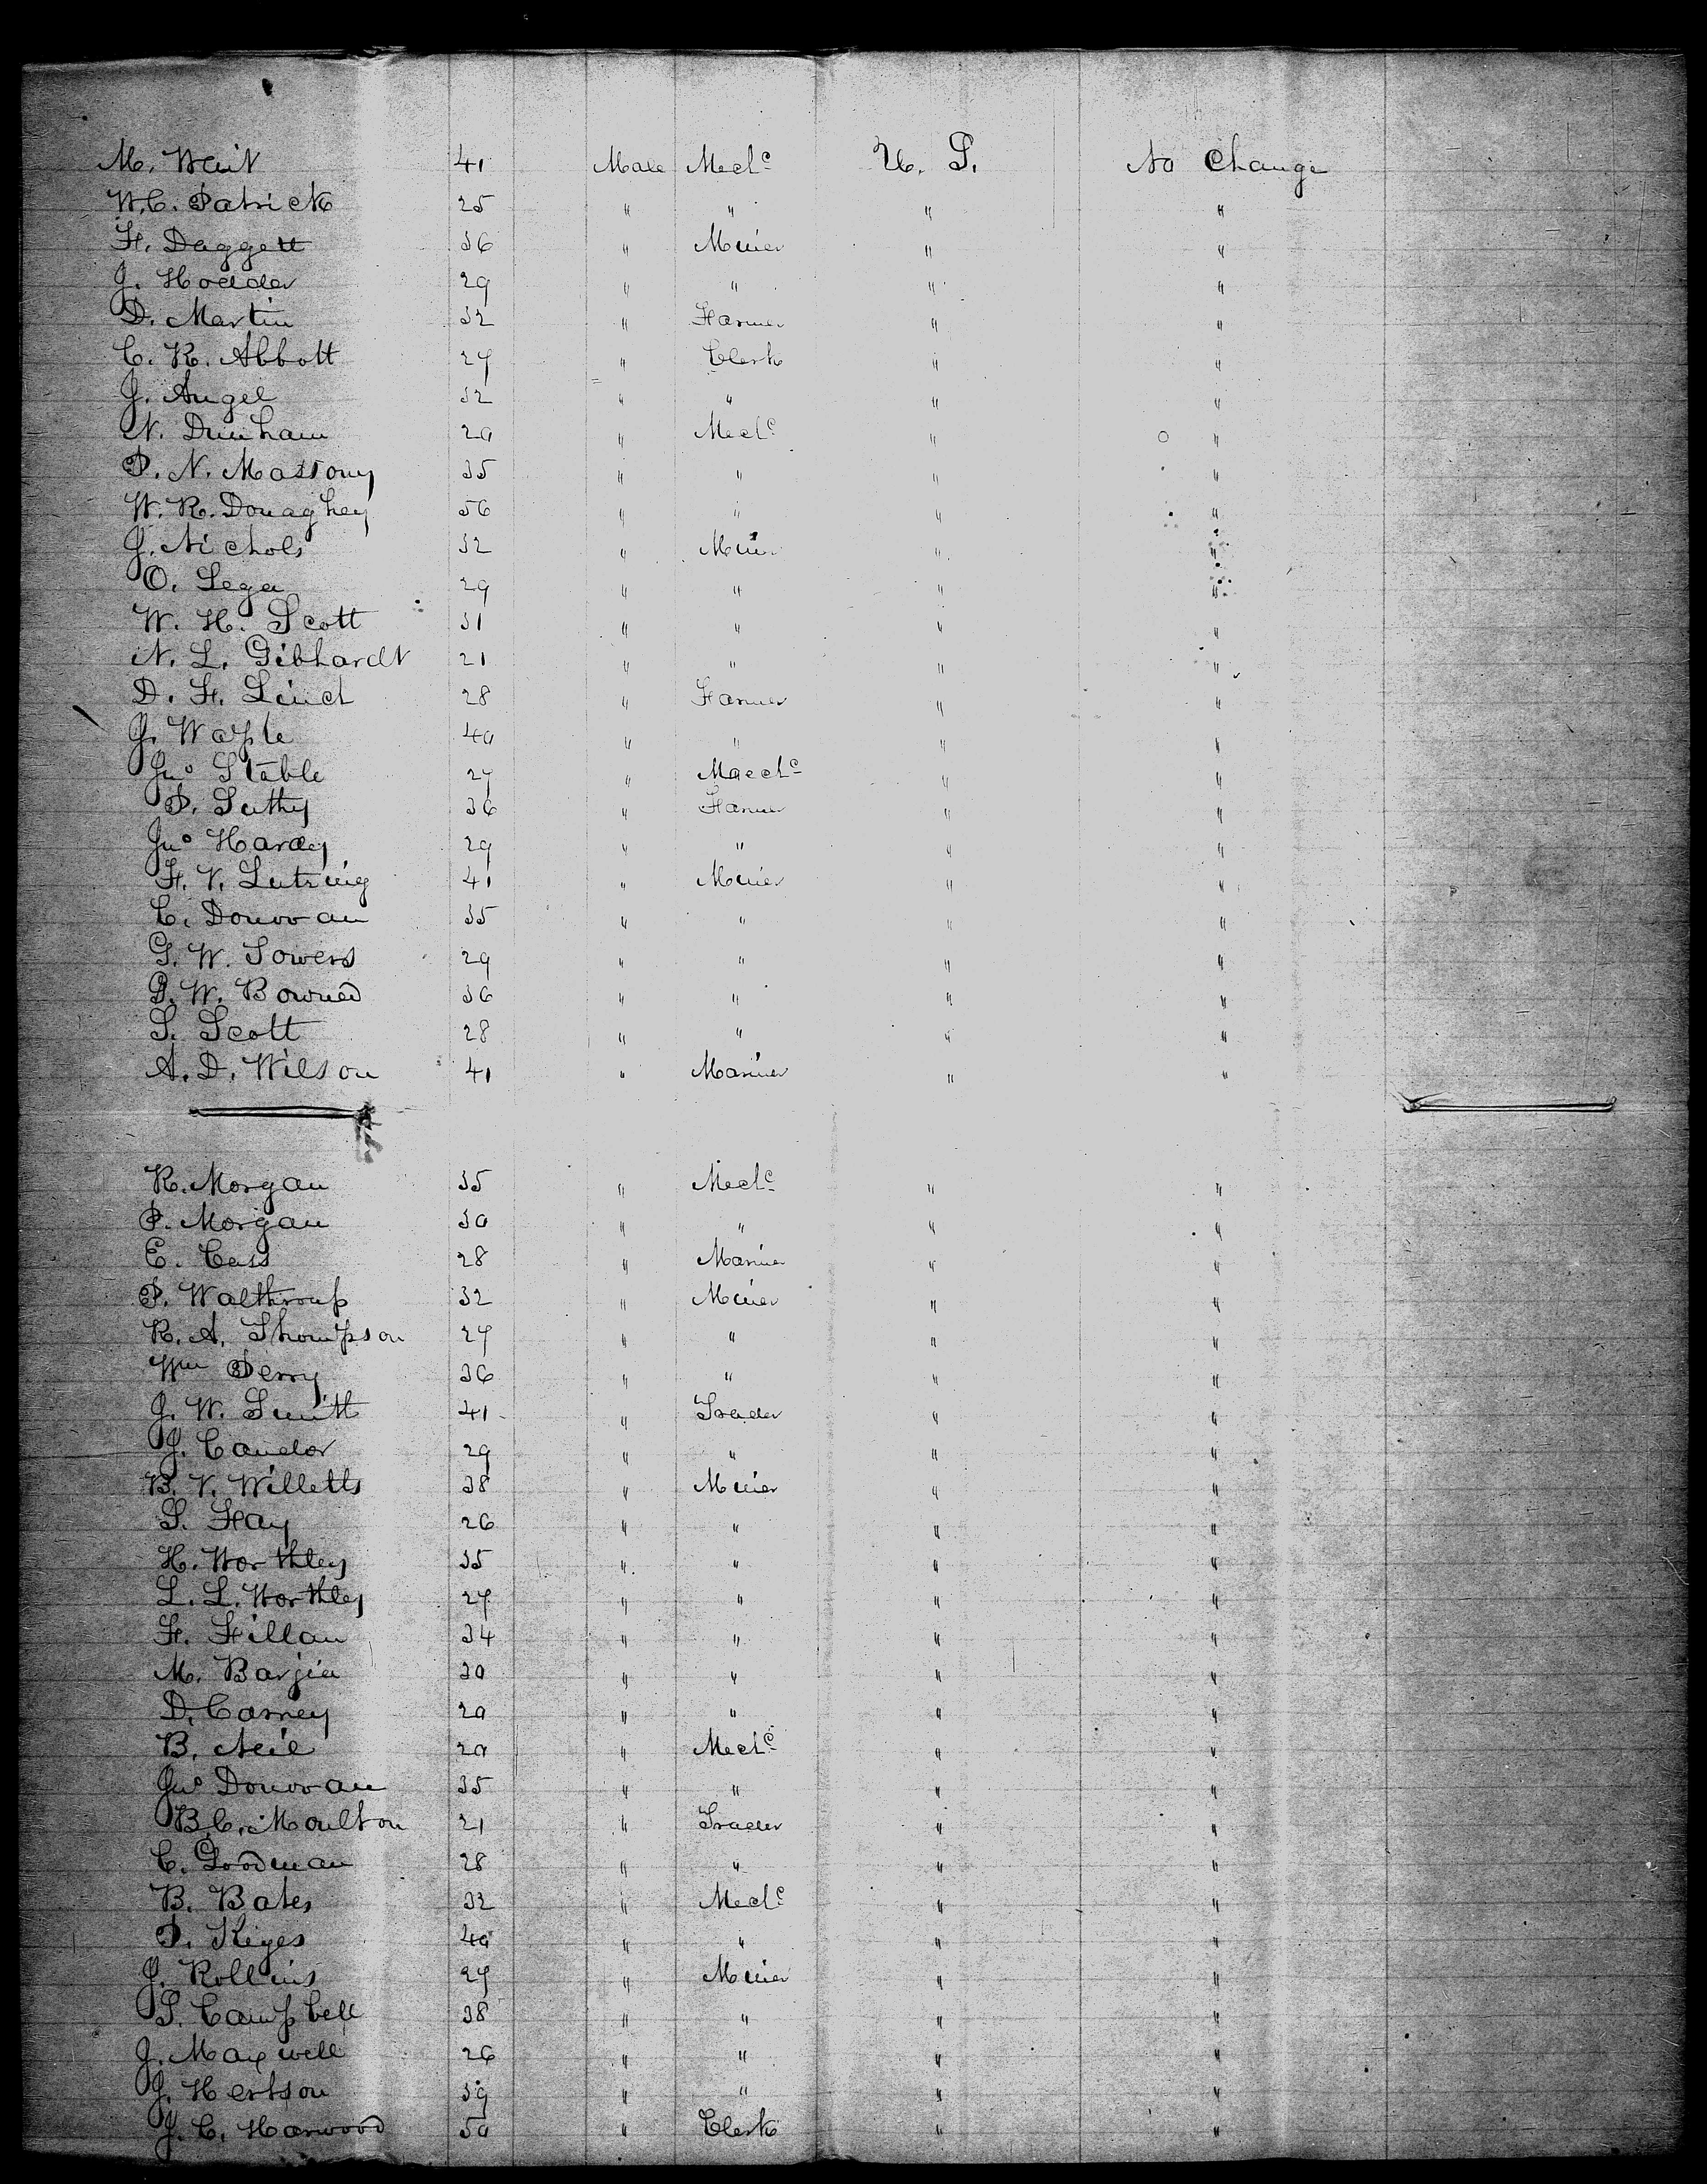 M. Wait 41 Male Mechc U. S. No Change
W. C. Patrick 25 " " " "
F. Daggett 36 " Miner " "
J. Hodder 29 " " " "
D. Martin 32 " Farmer " "
C. R. Abbott 27 " Clerk " "
J. Angel 32 " " " "
N. Dunham 20 " Mechc " "
P. N. Massony 35 " " " "
W. R. Donaghey 56 " " " "
J. Nichols 32 " Miner " "
O. Sega 29 " " " "
W. H. Scott 31 " " " "
N. L. Gibhardt 21 " " " "
D. F. Linch 28 " Farmer " "
J. Waple 40 " " " "
Jno Stable 27 " Maechc " "
P. Suthy 36 " Farmer " "
Jno Hardy 29 " " " "
F. V. Lutring 41 " Miner " "
C. Donovan 35 " " " "
G. W. Sowers 29 " " " "
P. W. Bowned 36 " " " "
S. Scott 28 " " " "
A. D. Wilson 41 " Mariner " "
R. Morgan 35 " Mechc " "
P. Morgan 30 " " " "
E. Cass 28 " Mariner " "
P. Walthroup 32 " Miner " "
R. A. Thompson 27 " " " "
Wm Perry 36 " " " "
J. W. Smith 41 " Trader " "
J. Candor 29 " " " "
B. V. Willetts 38 " Miner " "
S. Fay 26 " " " "
H. Worthley 35 " " " "
L. L. Worthley 27 " " " "
F. Fillan 34 " " " "
M. Barjin 30 " " " "
D. Carney 20 " " " "
B. Neil 20 " Mechc " "
Jno Donovan 35 " " " "
B. C. Moulton 21 " Trader " "
C. Goodman 28 " " " "
B. Bates 32 " Mechc " "
P. Keyes 40 " " " "
J. Rollins 27 " Miner " "
S. Campbell 38 " " " "
J. Maxwell 26 " " " "
J. Hertson 39 " " " "
J. C. Harwood 50 " Clerk " "